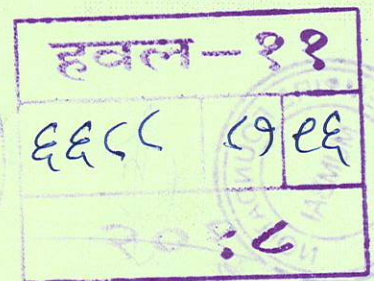 हवल - ११
६६८८ ८७ ९६
२०१८